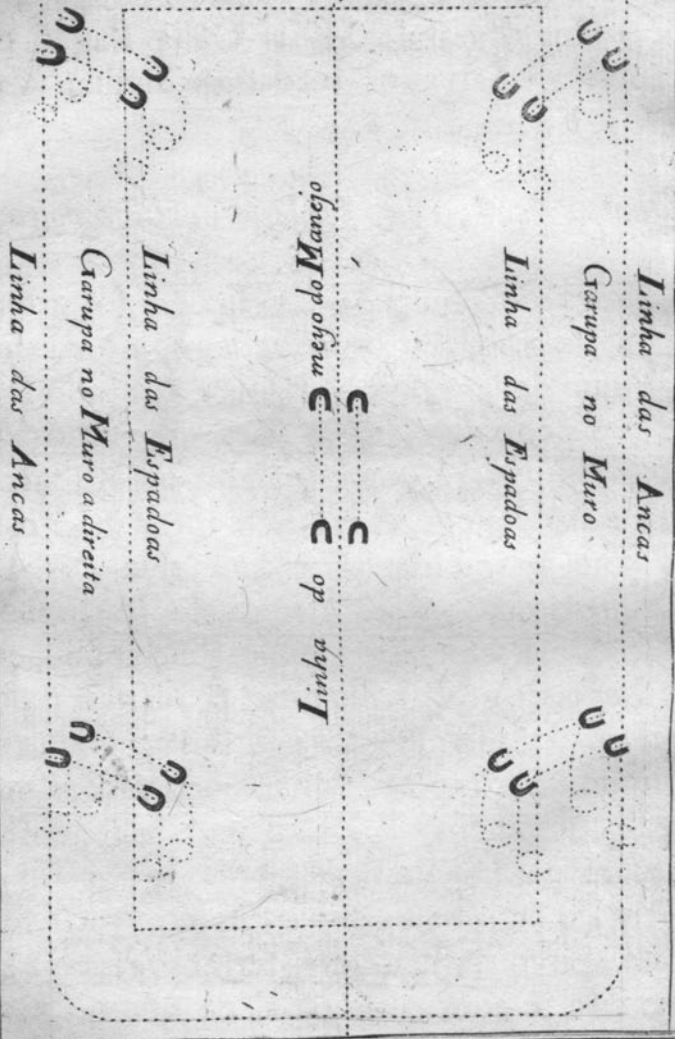 Linha das Ancas
Garupa no Muro
Linha das Espadoas
Linha do meyo do Manejo
Linha das Espadoas
Garupa no Muro a direita
Linha das Ancas